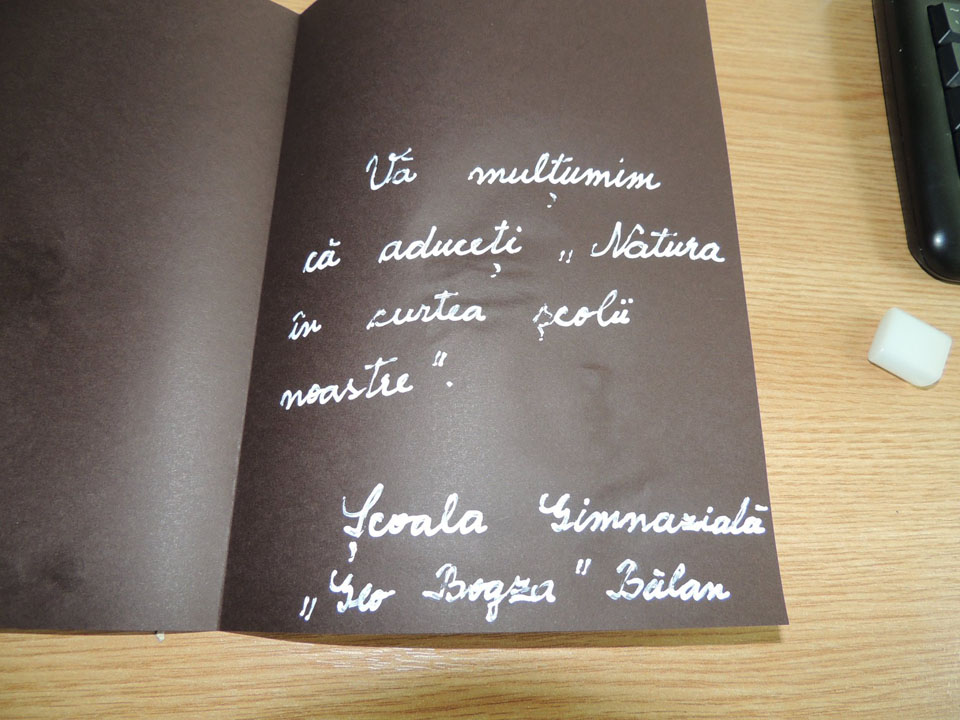 Vă mulțumim
că aduceți „Natura
în curtea școlii
noastre”.
Școala Gimnazială
„Geo Bogza” Bălan